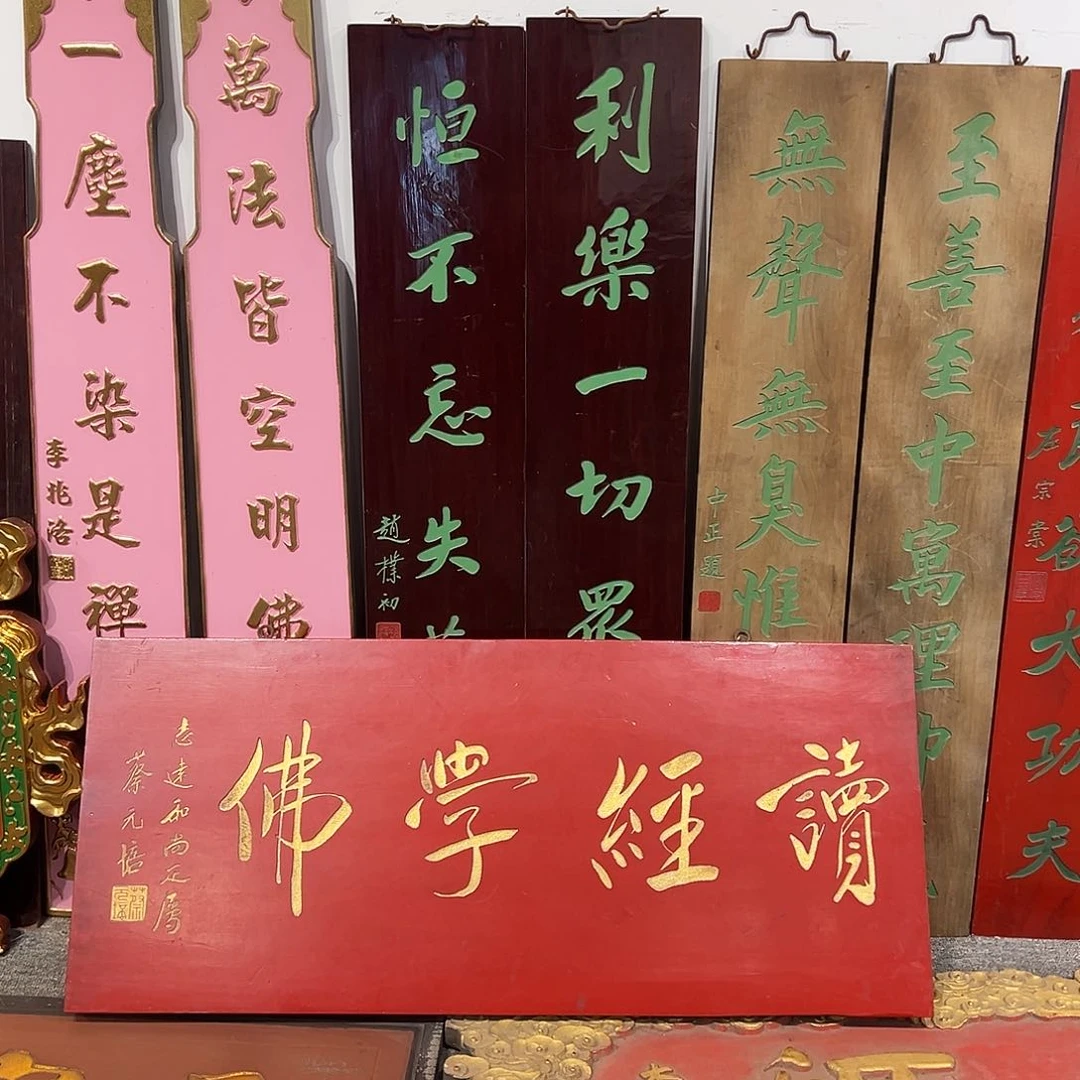 讀經學佛
志達和尚正屬
蔡元培
萬法皆空明佛
一塵不染是禪
李兆洛
利樂一切眾
恒不忘失
趙樸初
至善至中寓理帅
無聲無臭惟
中正題
大功夫
左宗棠